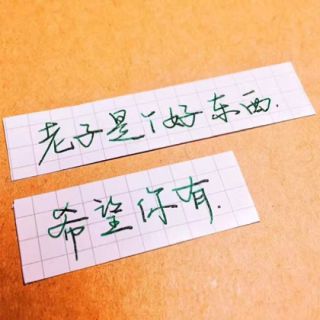 老子是个好东西.
希望你有.